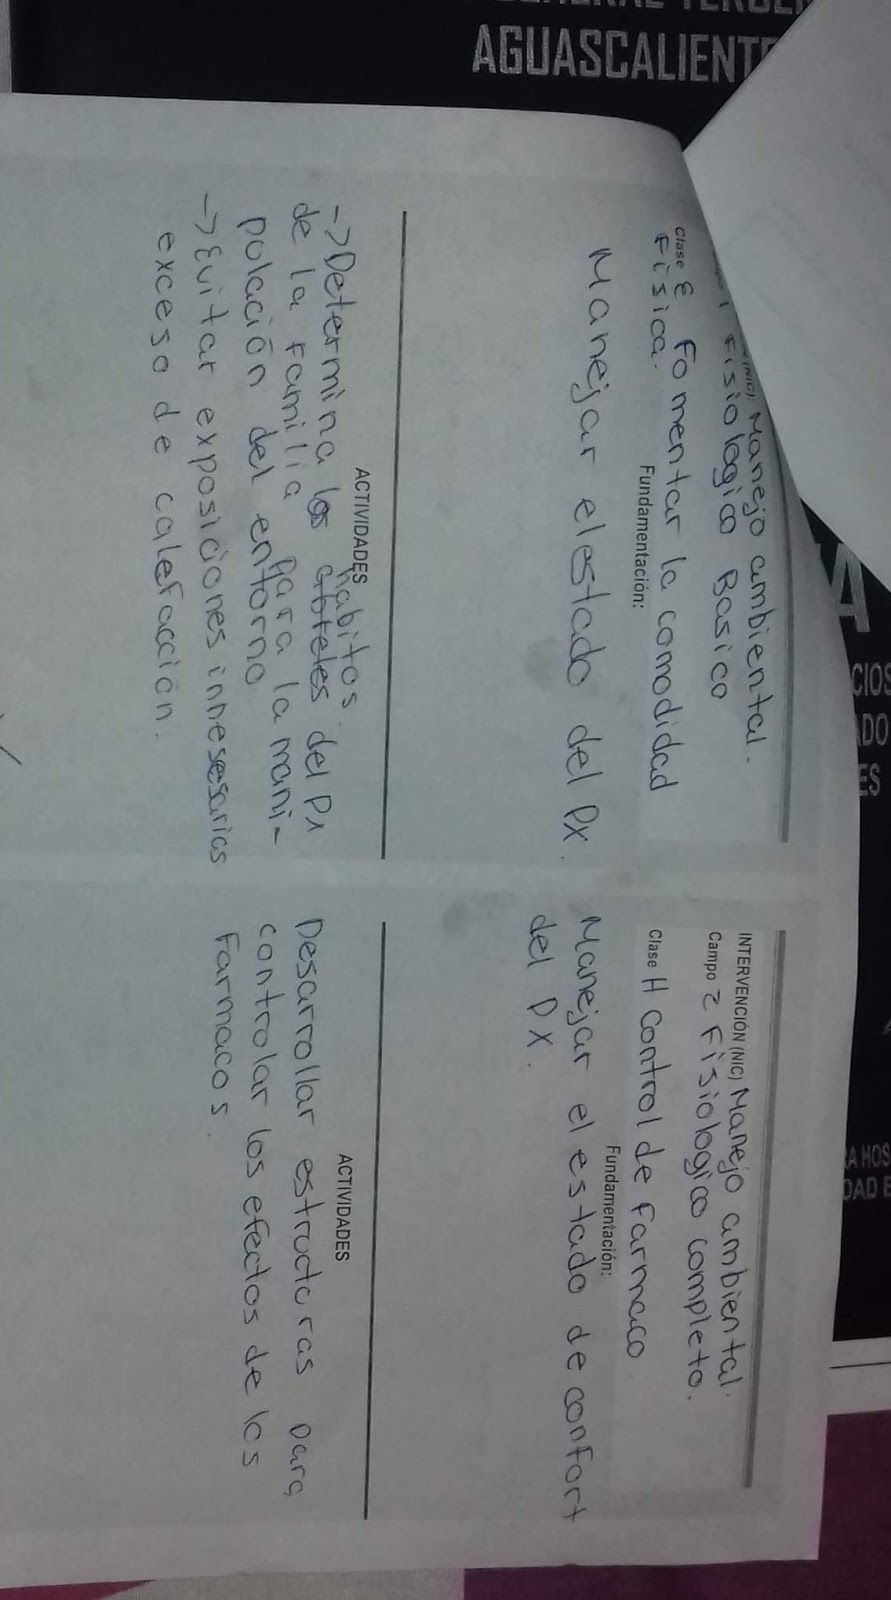 AGUASCALIENTE
Manejo ambiental.
Fisiologico Basico
Clase E Fomentar la comodidad
Fisica.
Fundamentación:
Manejar el estado del Px.
ACTIVIDADES
habitos
-> Determina los del Px
de la familia para la mani-
polación del entorno
-> Evitar exposiciones innesesarias
exceso de calefacción.
INTERVENCIÓN (NIC) Manejo ambiental.
Campo 2 Fisiologico completo.
Clase H Control de Farmaco
Fundamentación:
Manejar el estado de confort
del PX.
ACTIVIDADES
Desarrollar estructuras para
controlar los efectos de los
Farmacos.